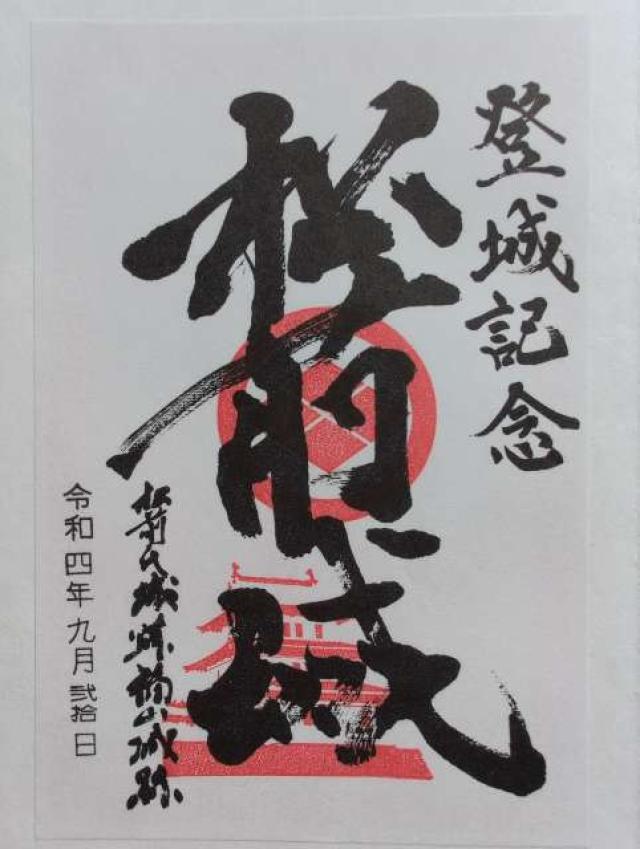 登城記念
松前城
松前氏城跡福山城跡
令和四年九月弐拾日